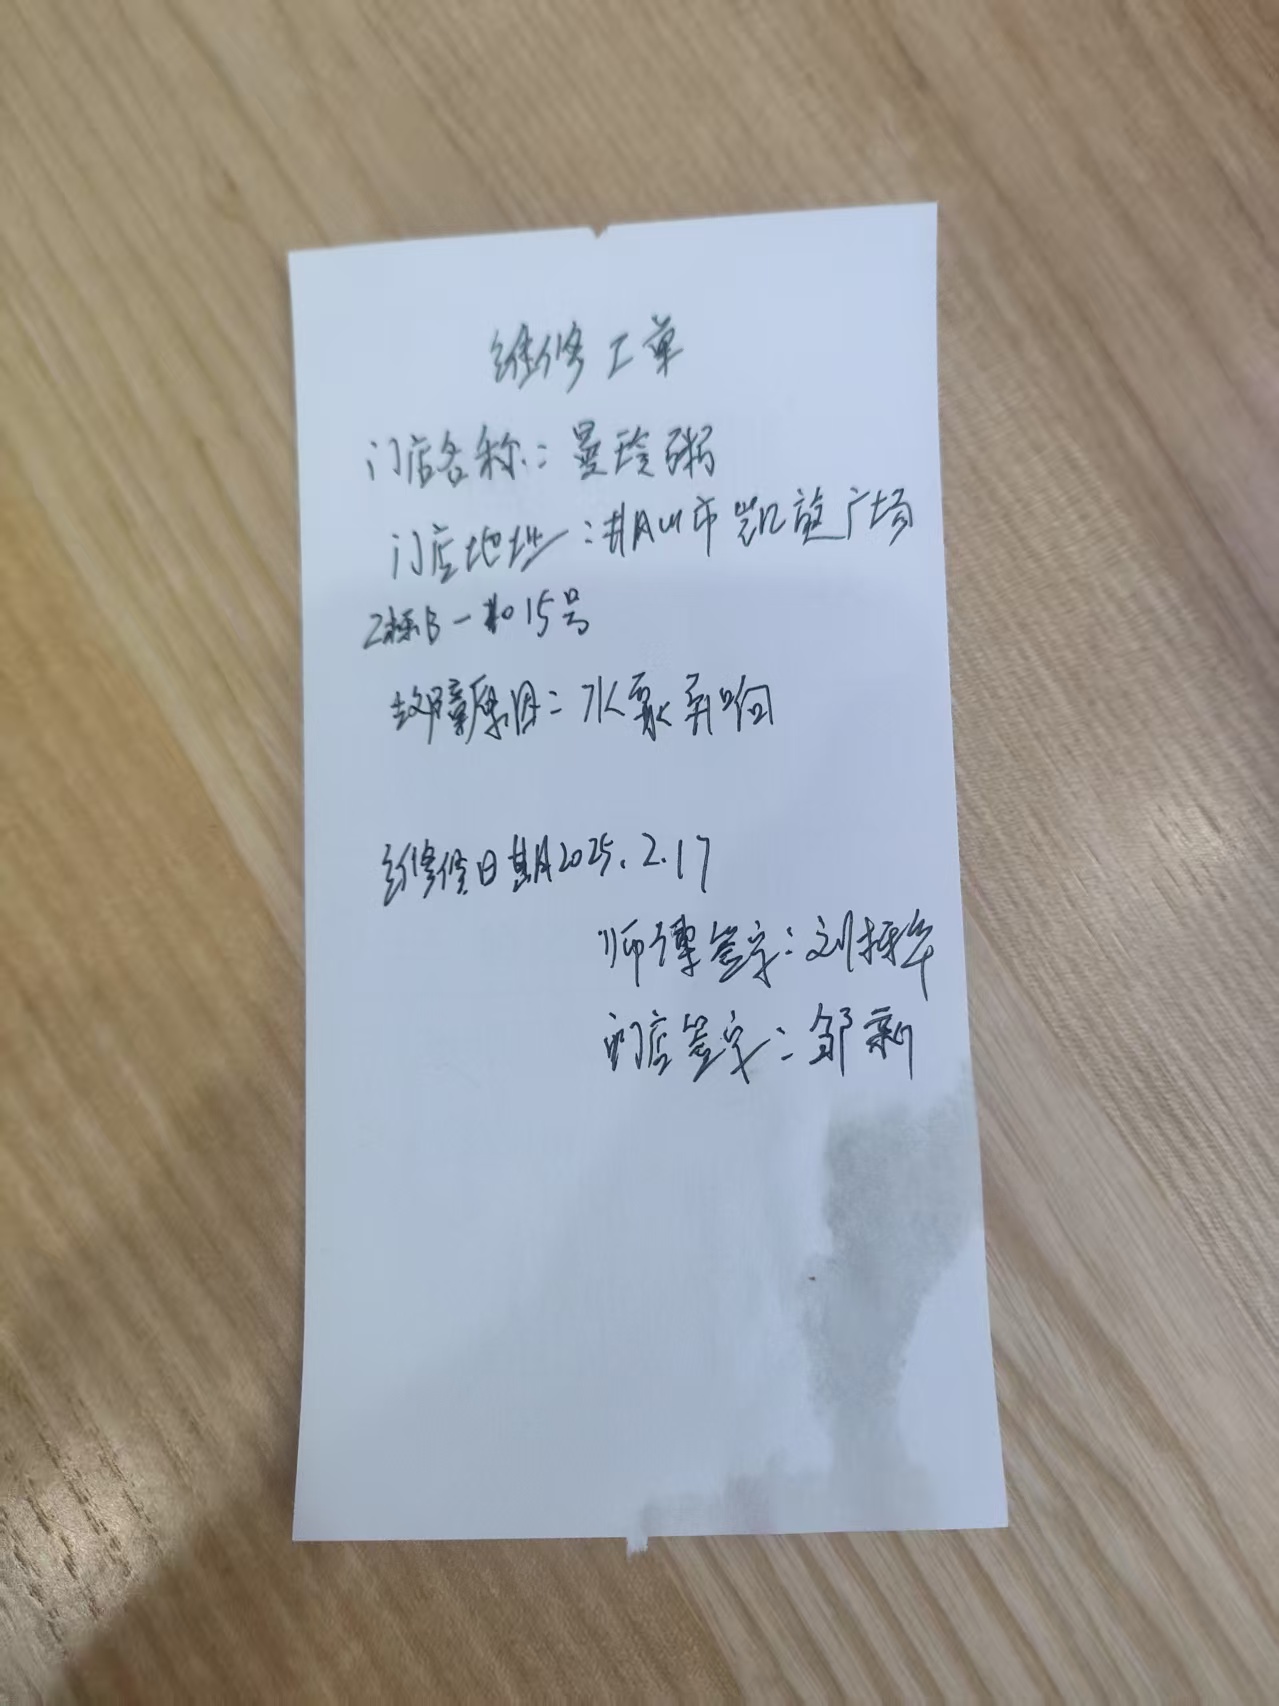 维修工单
门店名称：曼玲粥
门店地址：山市凯旋广场
2栋B一15号
故障原因：水泵异响
维修日期2025.2.17
师傅签字：刘
门店签字：邹新